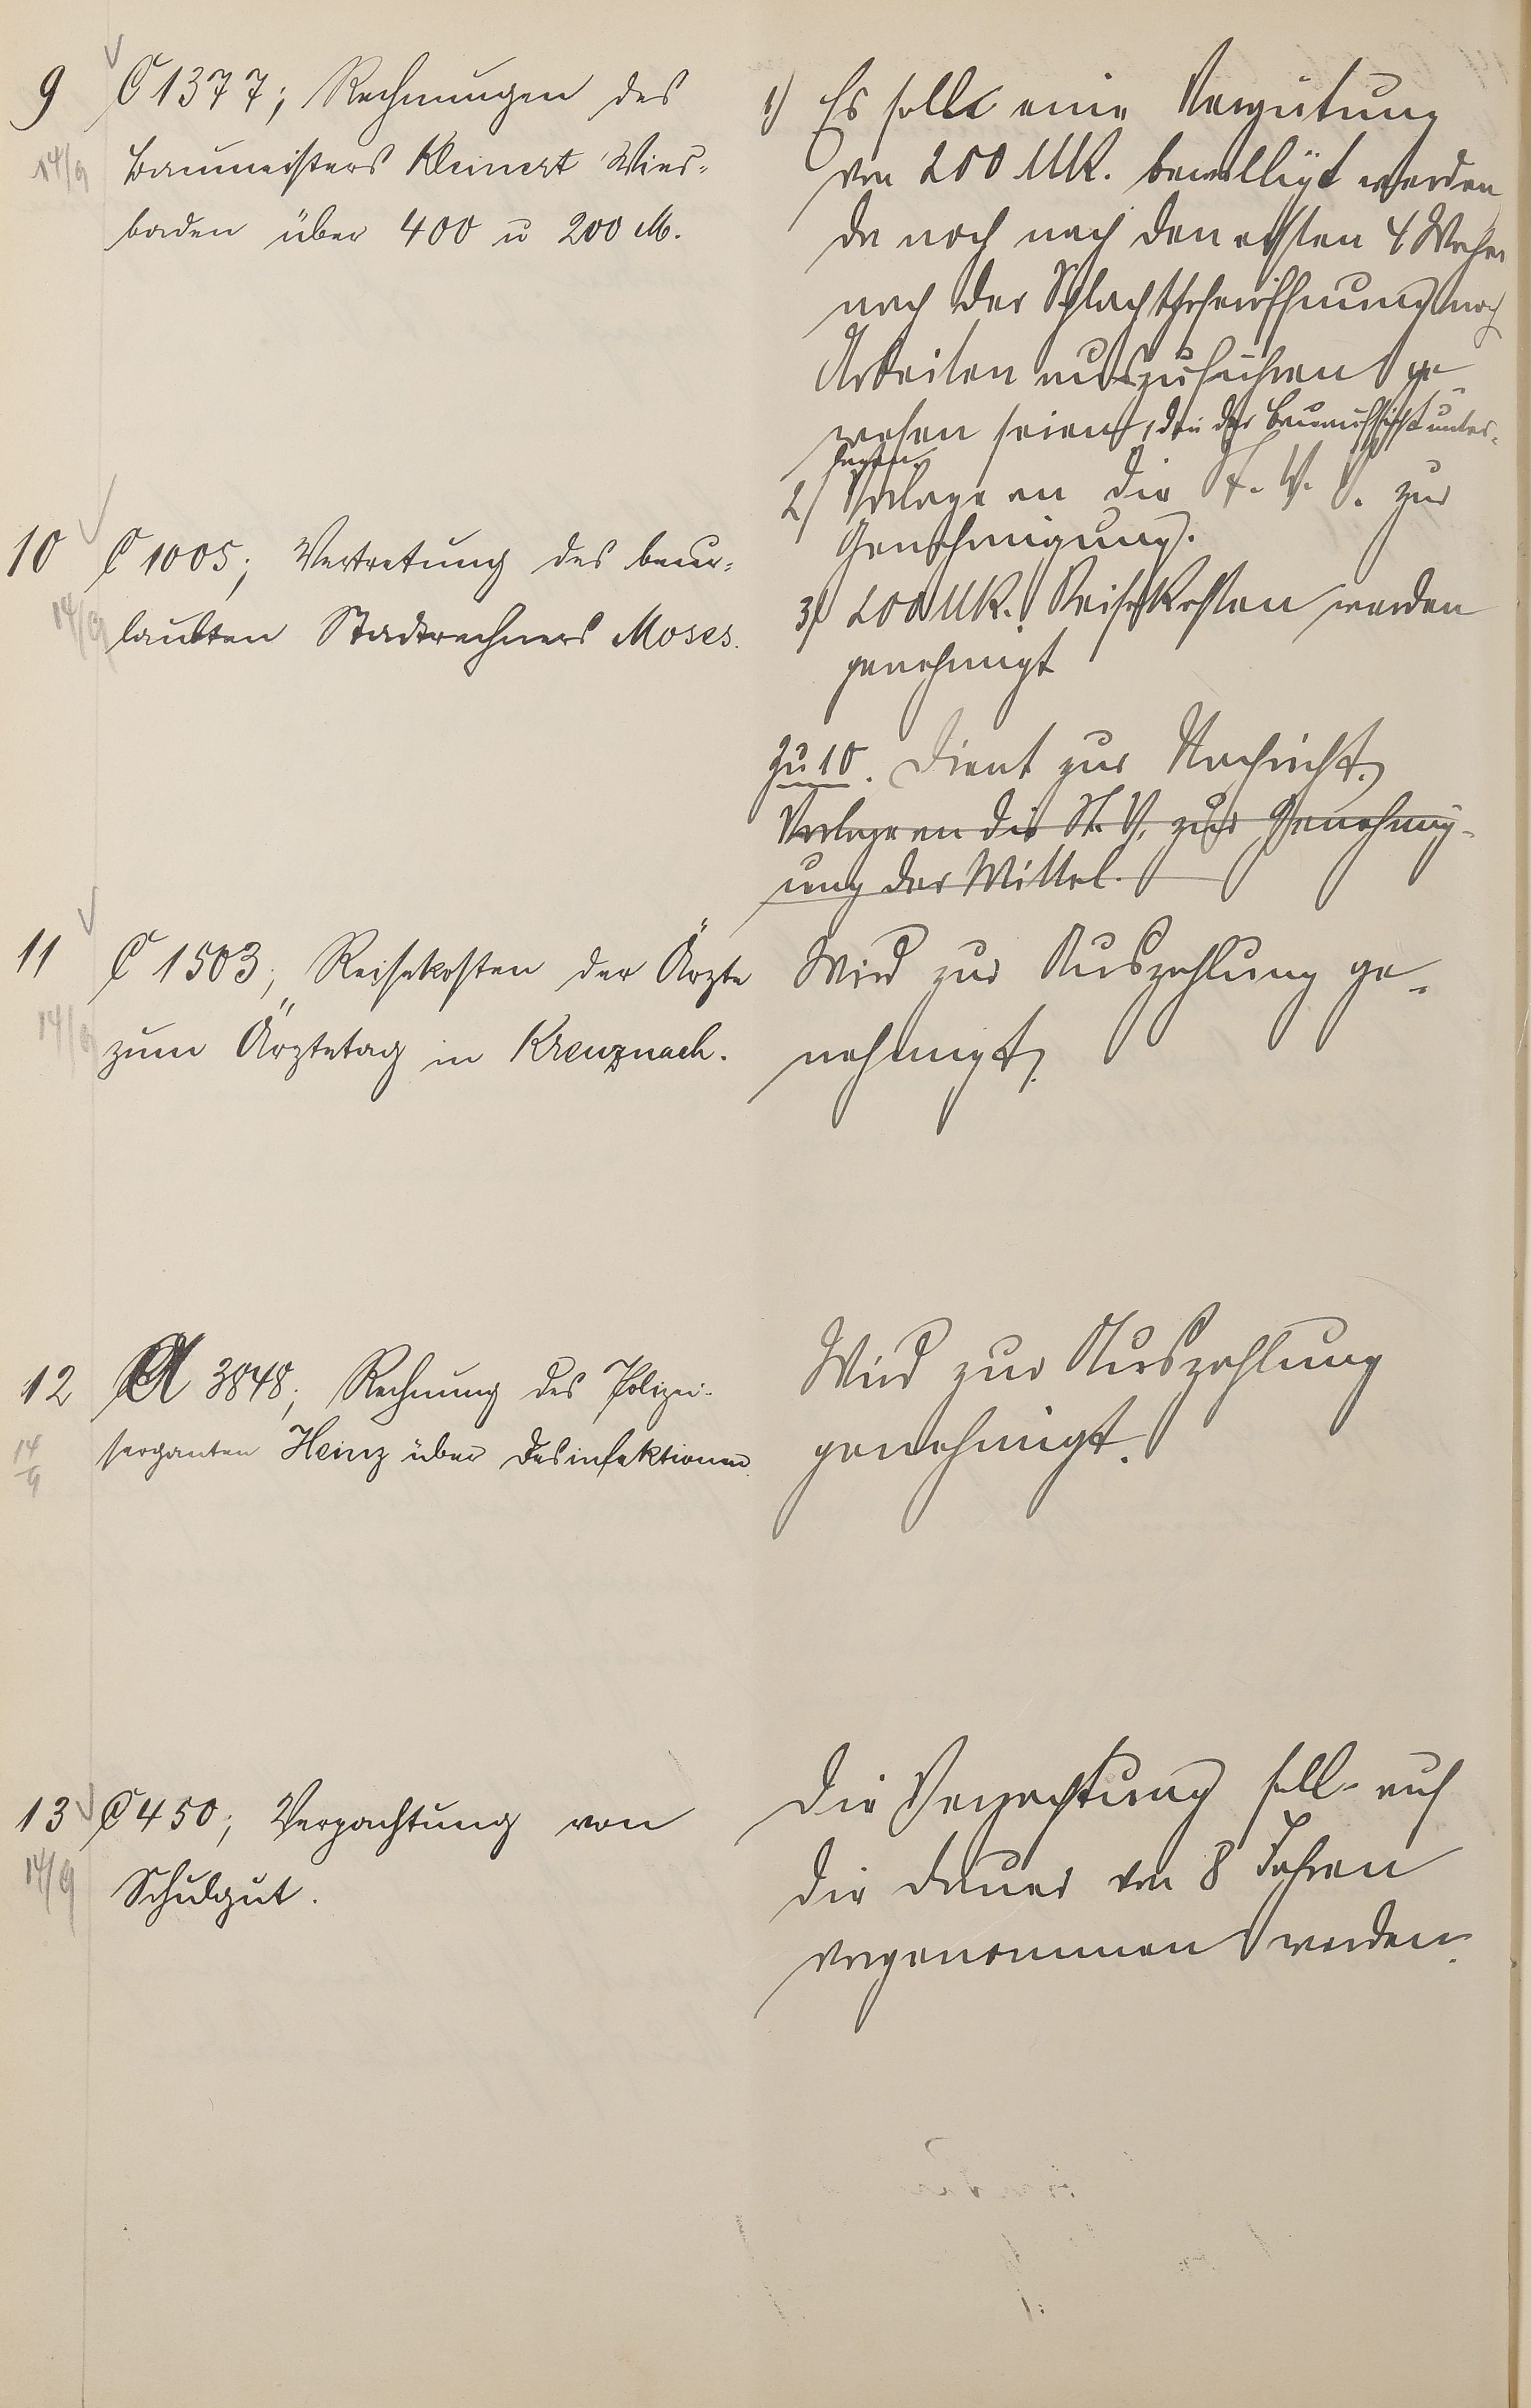 9 C 1377; Rechnungen des
14/9 Baumeisters Kleinert Wies-
baden über 400 u 200 M.
1) Es solle eine Vergütung
von 200 Mk. bewilligt werden
da noch nach den ersten 4 Wochen
nach der Schlachthoferöffnung noch
Arbeiten auszuführen ge-
wesen seien, die der Bauaufsicht unter-
lagen.
2) Vorlage an die St. V. V. zur
Genehmigung.
3) 200 Mk. Reisekosten werden
genehmigt
10 C 1005; Vertretung des beur-
14/9 laubten Stadtrechners Moses.
Zu 10. Dient zur Nachricht.
Vorlage an die St. V. zur Genehmig-
ung der Mittel.
11 C 1503; Reisekosten der Ärzte
14/9 zum Ärztetag in Kreuznach.
Wird zur Auszahlung ge-
nehmigt.
12 A 3848; Rechnung des Polizei-
14/9 serganten Heinz über Desinfektionen.
Wird zur Auszahlung
genehmigt.
13 C 450; Verpachtung von
14/9 Schulgut.
Die Verpachtung soll auf
die Dauer von 8 Jahren
vorgenommen werden.